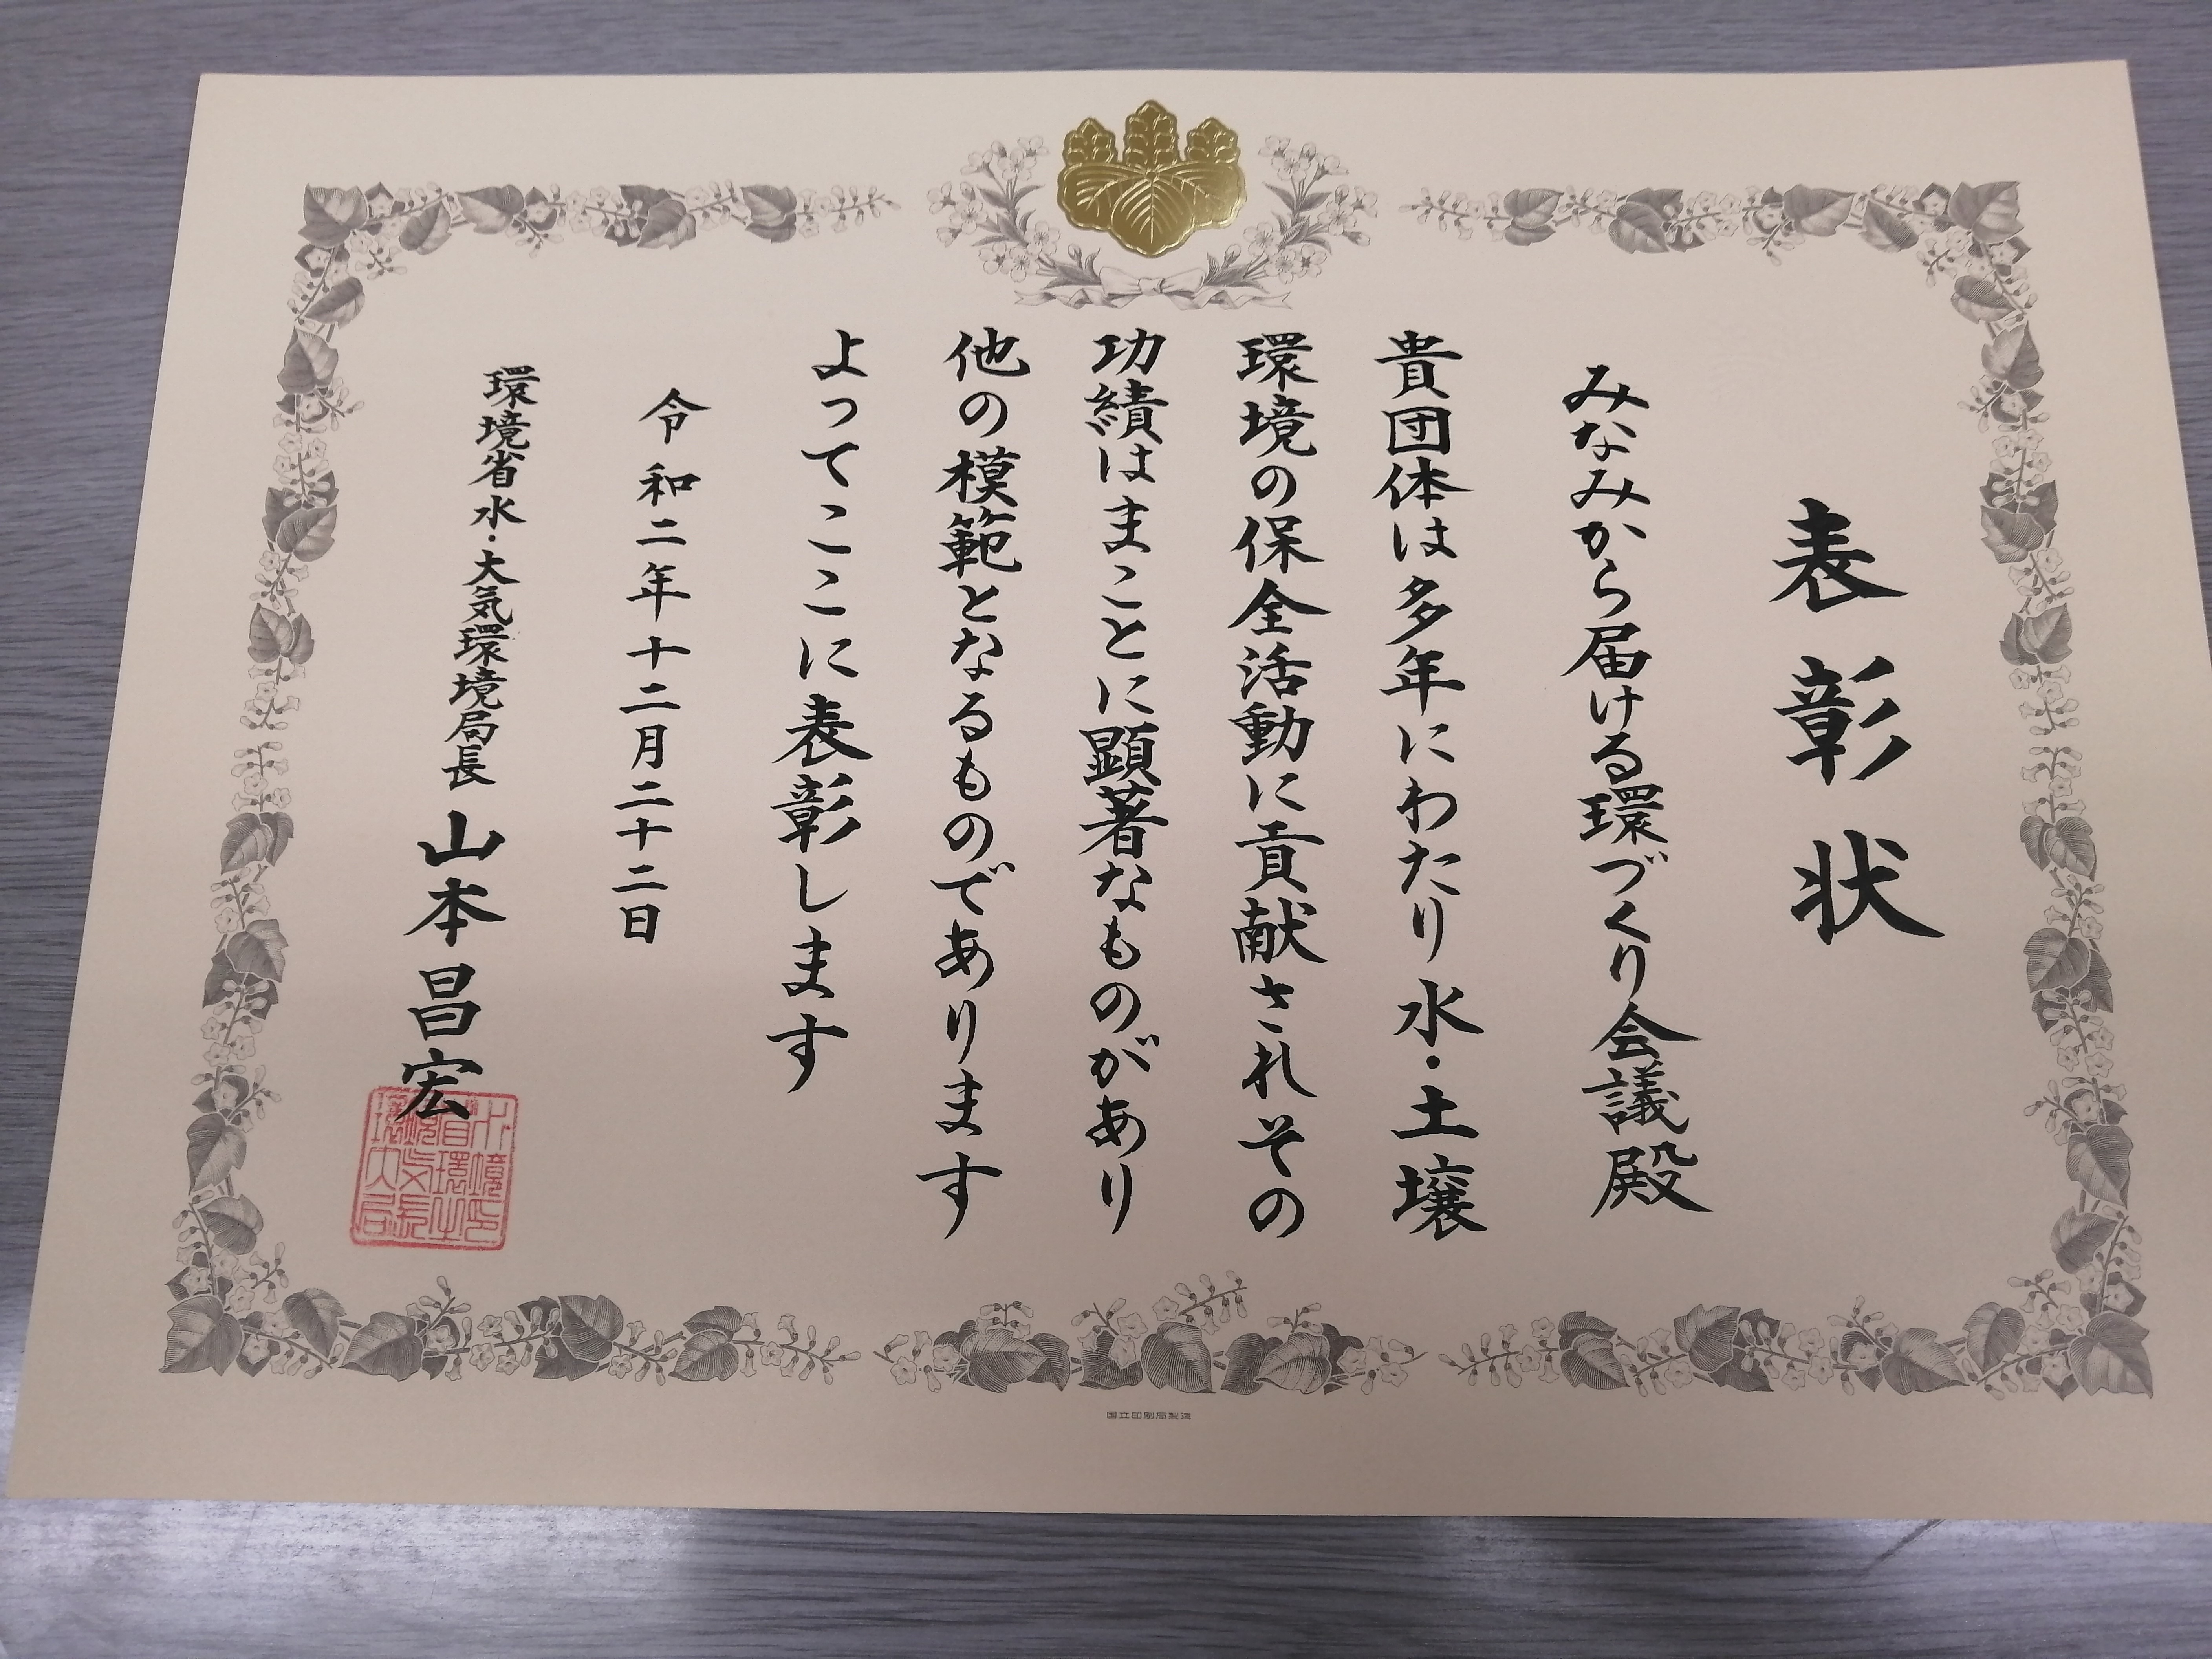 表彰状
みなみから届ける環づくり会議殿
貴団体は多年にわたり水・土壌
環境の保全活動に貢献されその
功績はまことに顕著なものがあり
他の模範となるものであります
よってここに表彰します
令和二年十二月二十二日
環境省水・大気環境局長 山本昌宏
国立印刷局製造